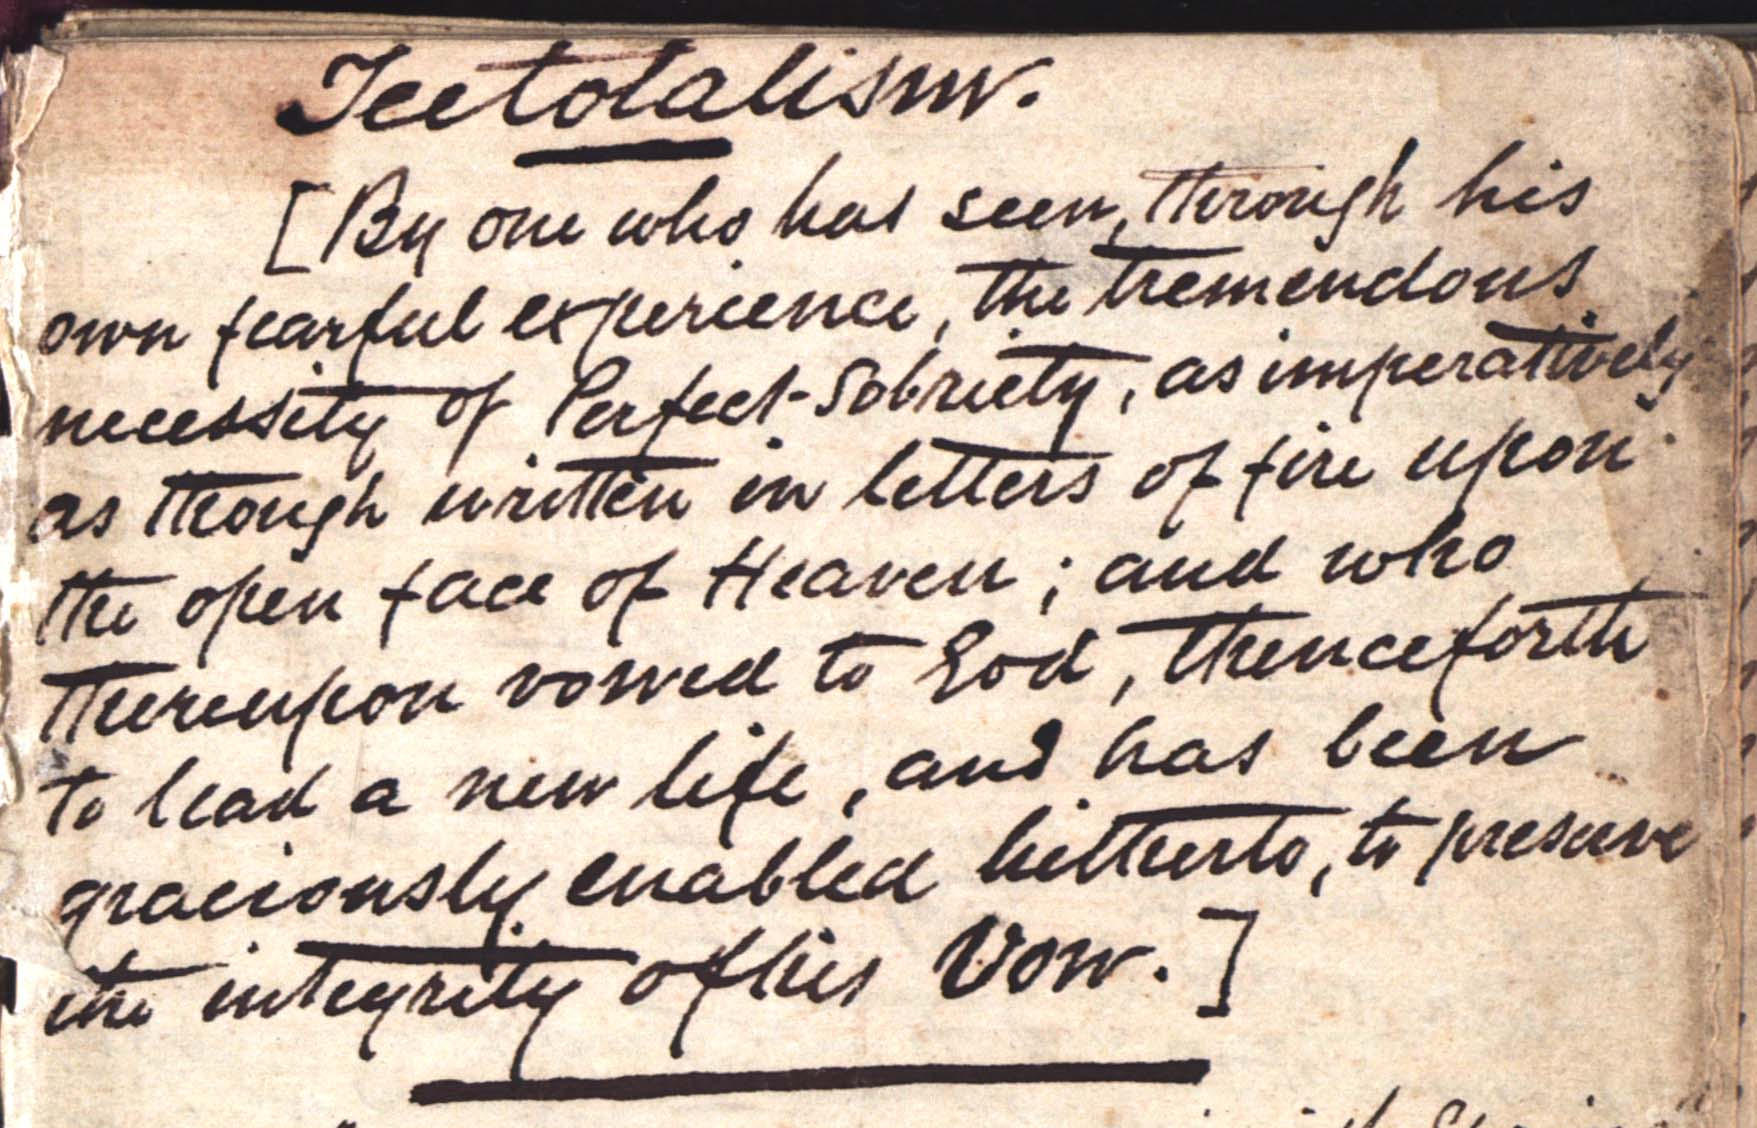 Teetotalism.
[By one who has seen, through his
own fearful experience, the tremendous
necessity of Perfect-Sobriety, as imperatively
as though written in letters of fire upon
the open face of Heaven; and who
thereupon vowed to God, thenceforth
to lead a new life, and has been
graciously enabled hitherto, to preserve
the integrity of his Vow.]